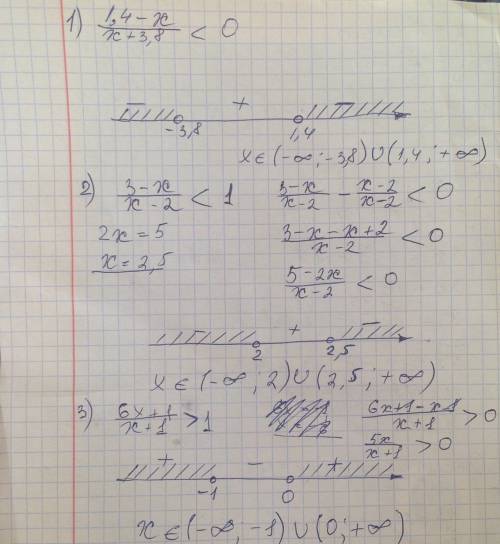 1) (1,4-x)/(x+3,8) < 0
- + -
-3,8 1,4
x ∈ (-∞; -3,8) ∪ (1,4; +∞)
2) (3-x)/(x-2) < 1 (3-x)/(x-2) - (x-2)/(x-2) < 0
2x = 5 (3-x-x+2)/(x-2) < 0
x = 2,5 (5-2x)/(x-2) < 0
- + -
2 2,5
x ∈ (-∞; 2) ∪ (2,5; +∞)
3) (6x+1)/(x+1) > 1 (6x+1-x-1)/(x+1) > 0
5x/(x+1) > 0
+ - +
-1 0
x ∈ (-∞; -1) ∪ (0; +∞)